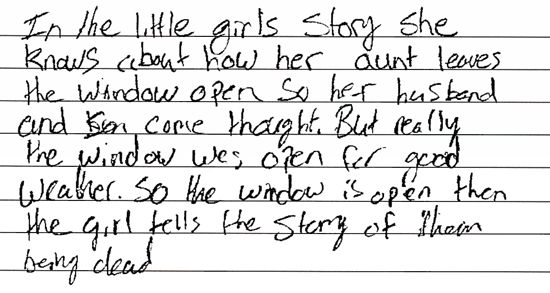 In the little girls Story She
knows about how her aunt leaves
the window open So her husband
and son come thought. But really
the window was open for good
weather. So the window is open then
the girl tells the Story of Them
being dead